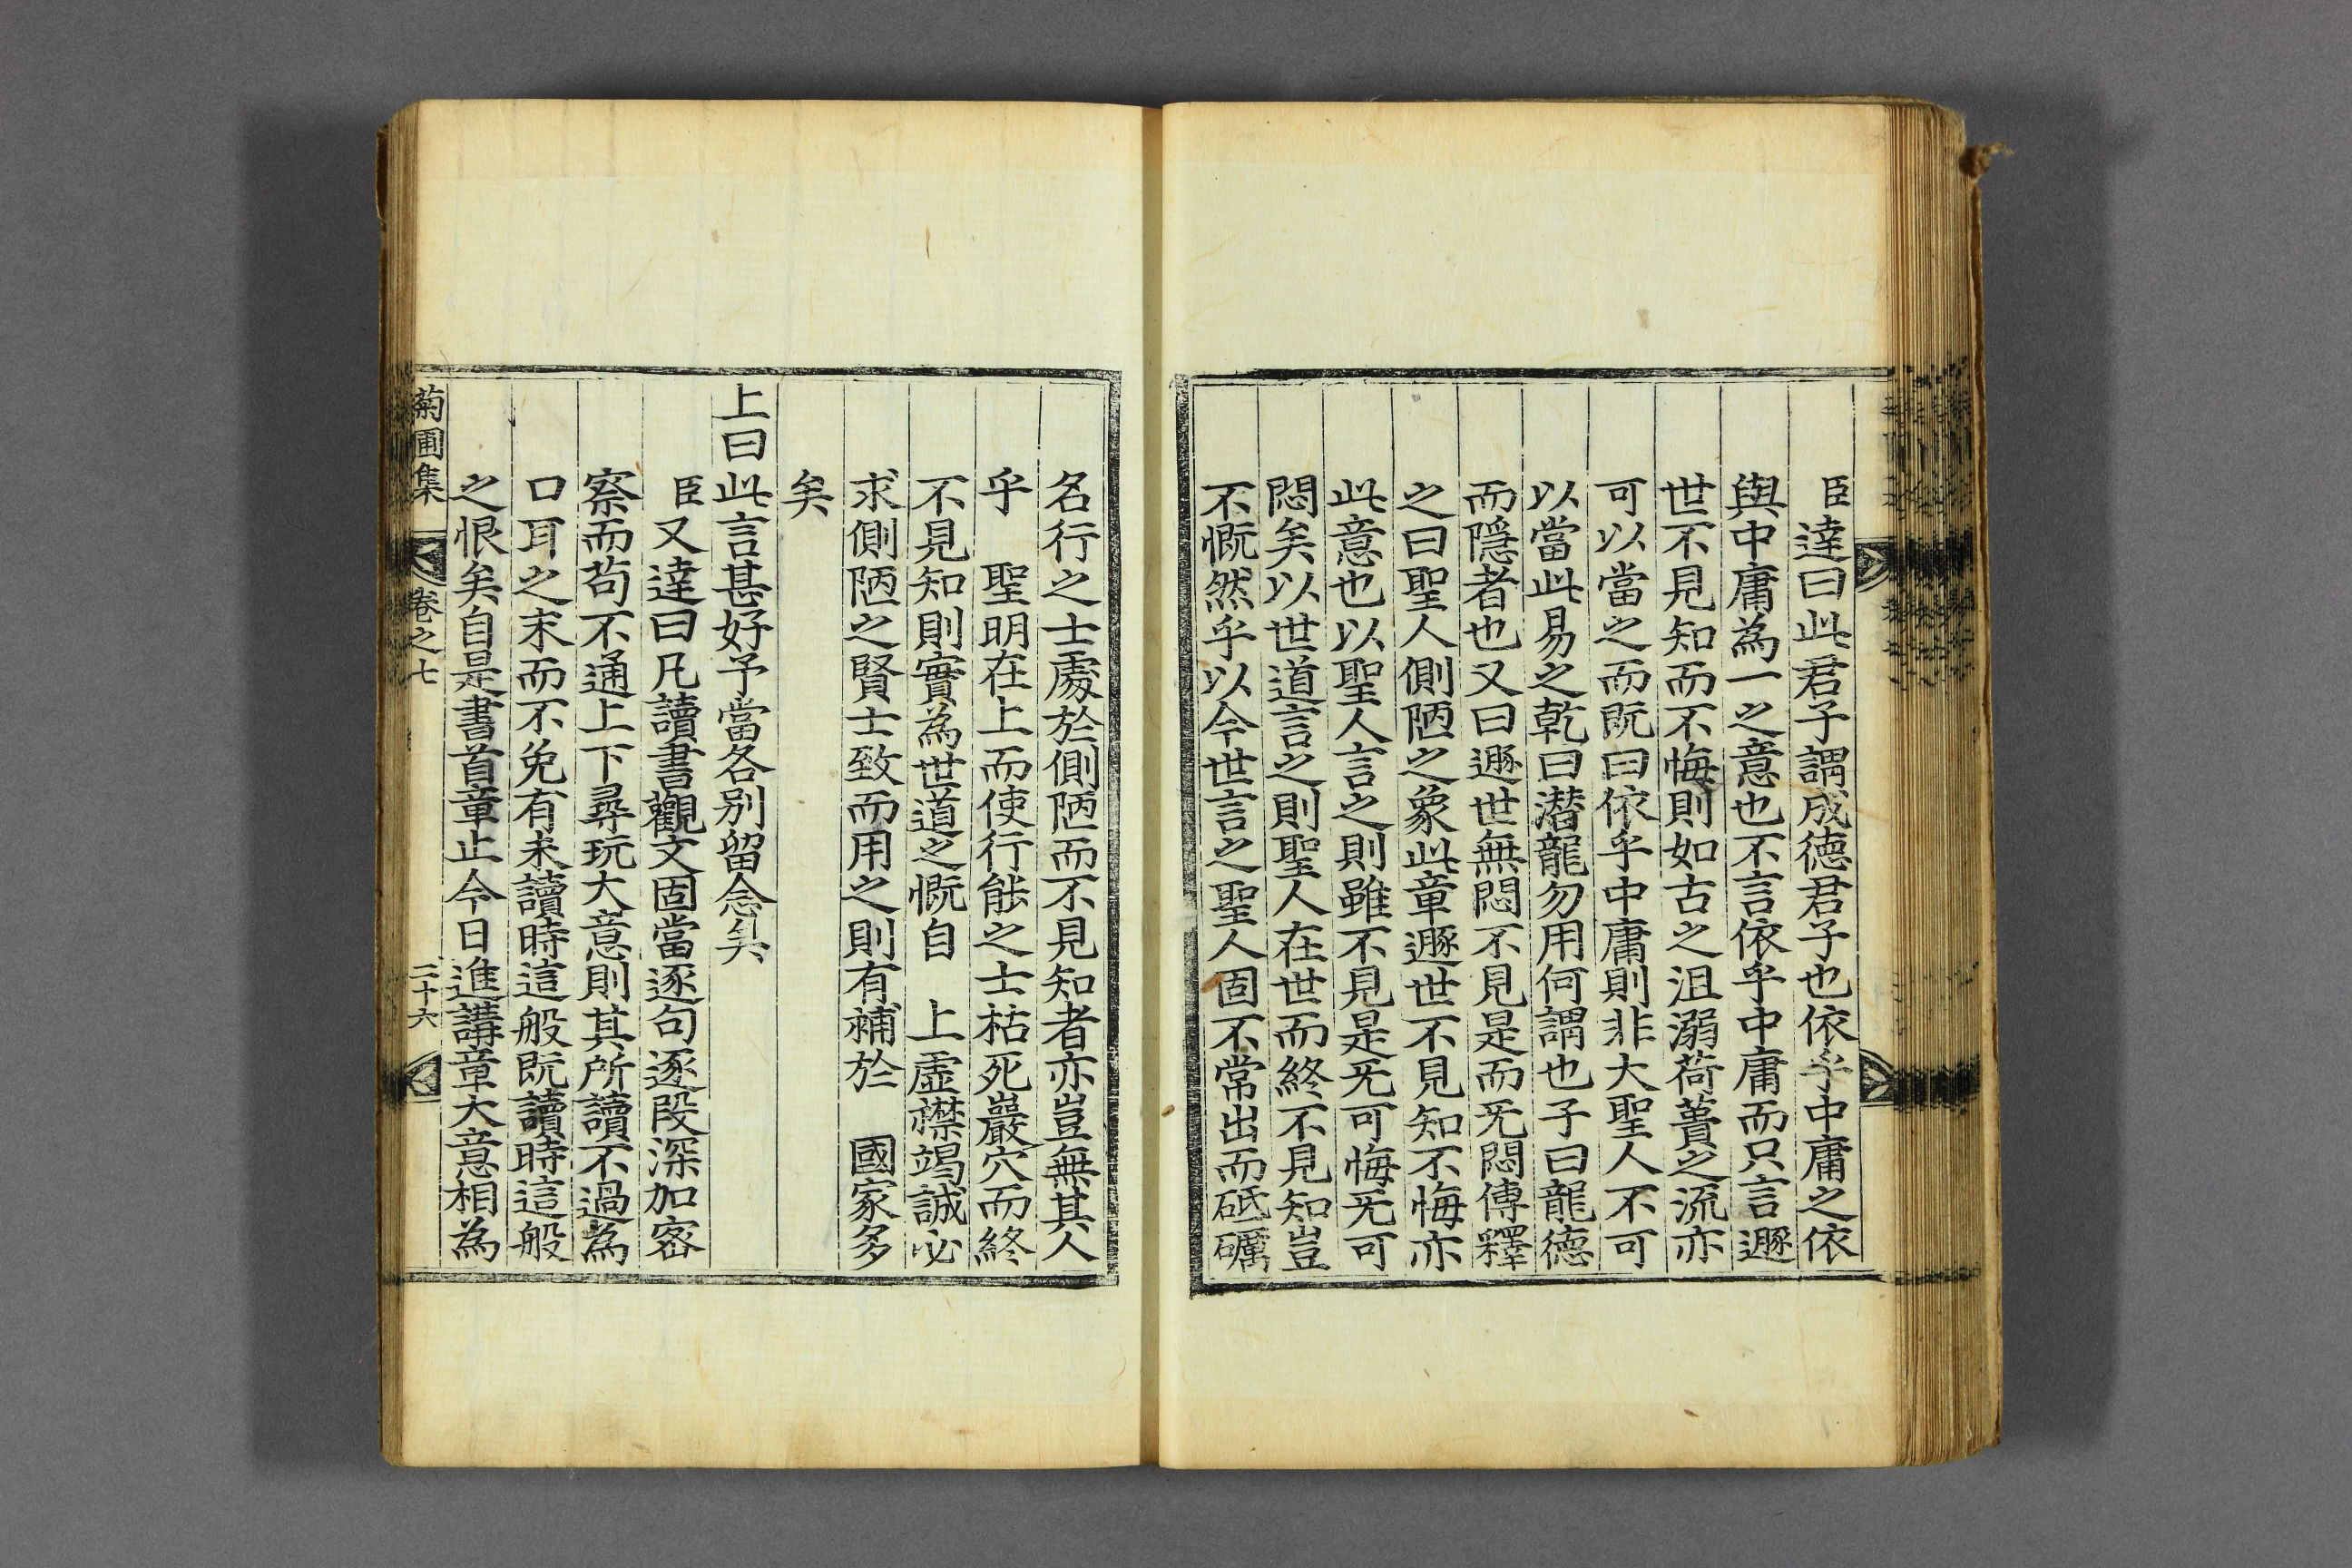 臣達曰此君子謂成德君子也依乎中庸之依
與中庸為一之意也不言依乎中庸而只言遯
世不見知而不悔則如古之沮溺荷蕢之流亦
可以當之而既曰依乎中庸則非大聖人不可
以當此易之乾曰潜龍勿用何謂也子曰龍德
而隱者也又曰遯世無悶不見是而无悶傳釋
之曰聖人側陋之象此章遯世不見知不悔亦
此意也以聖人言之則雖不見是无可悔无可
悶矣以世道言之則聖人在世而終不見知豈
不慨然乎以今世言之聖人固不常出而砥礪
名行之士處於側陋而不見知者亦豈無其人
乎 聖明在上而使行能之士枯死巖穴而終
不見知則實為世道之慨自 上虛襟竭誠必
求側陋之賢士致而用之則有補於 國家多
矣
上曰此言甚好予當各別留念矣
臣又達曰凡讀書觀文固當逐句逐段深加密
察而苟不通上下尋玩大意則其所讀不過為
口耳之末而不免有未讀時這般既讀時這般
之恨矣自是書首章止今日進講章大意相為
菊圃集 卷之七 二十六